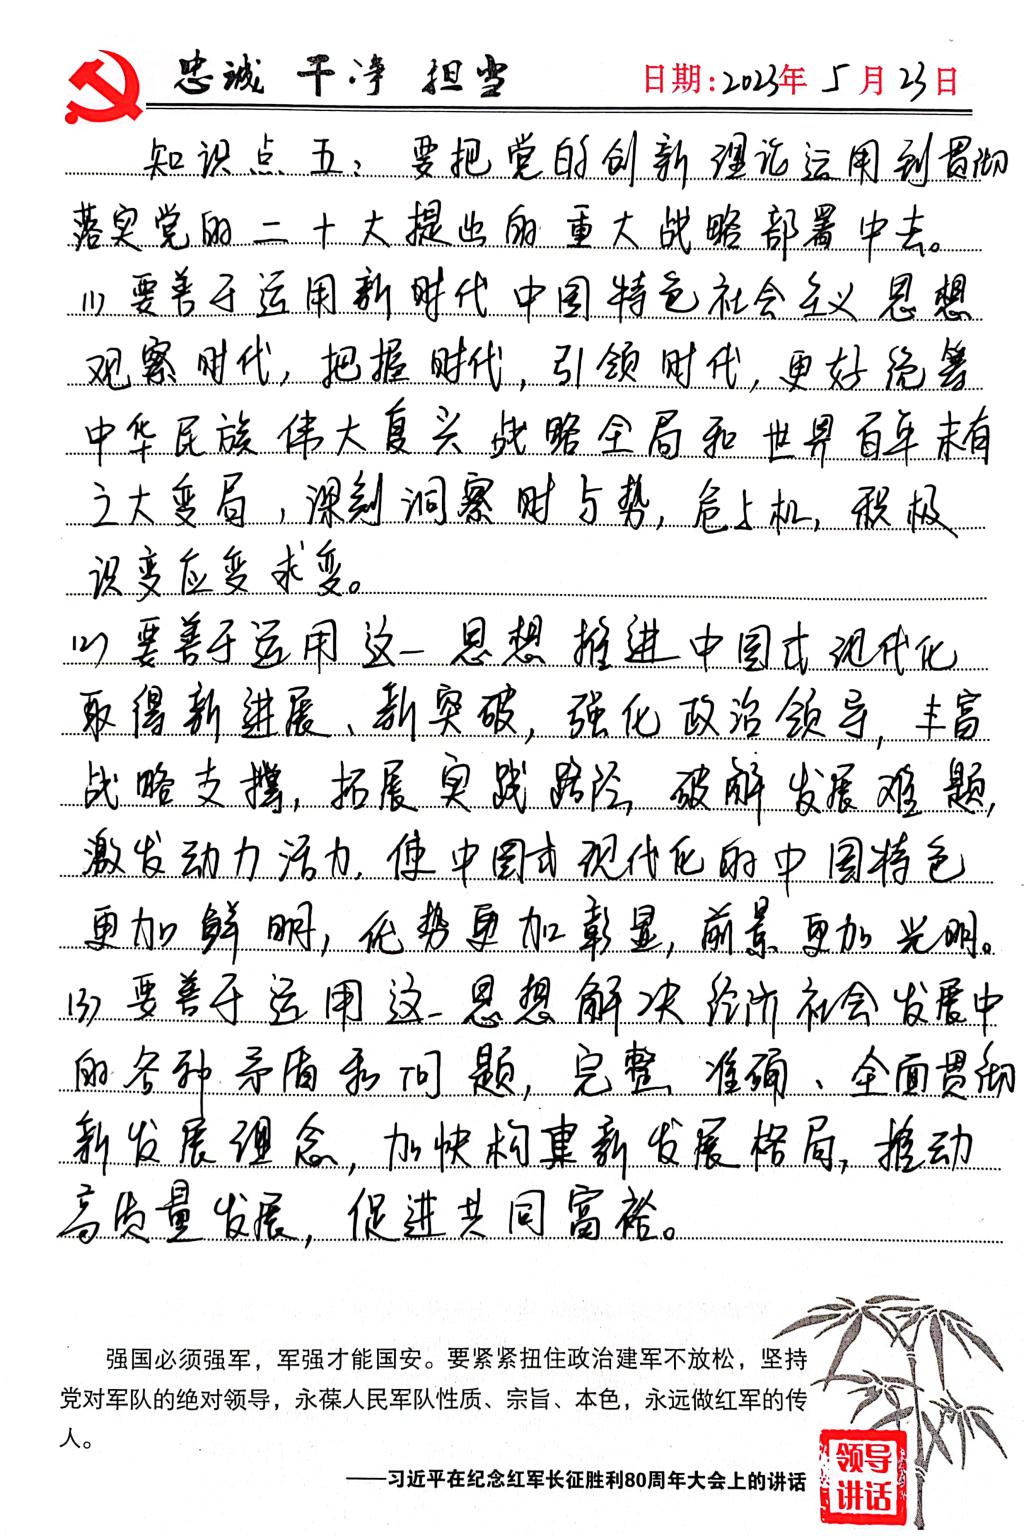 忠诚 干净 担当 日期：2023年 5月 23日
知识点五：要把党的创新理论运用到贯彻
落实党的二十大提出的重大战略部署中去。
(1) 要善于运用新时代中国特色社会主义思想
观察时代，把握时代，引领时代，更好统筹
中华民族伟大复兴战略全局和世界百年未有
之大变局，深刻洞察时与势，危与机，积极
识变应变求变。
(2) 要善于运用这一思想推进中国式现代化
取得新进展、新突破，强化政治领导，丰富
战略支撑，拓展实践路径，破解发展难题，
激发动力活力，使中国式现代化的中国特色
更加鲜明，优势更加彰显，前景更加光明。
(3) 要善于运用这一思想解决经济社会发展中
的各种矛盾和问题，完整、准确、全面贯彻
新发展理念，加快构建新发展格局，推动
高质量发展，促进共同富裕。
强国必须强军，军强才能国安。要紧紧扭住政治建军不放松，坚持
党对军队的绝对领导，永葆人民军队性质、宗旨、本色，永远做红军的传
人。
——习近平在纪念红军长征胜利80周年大会上的讲话
领导
讲话